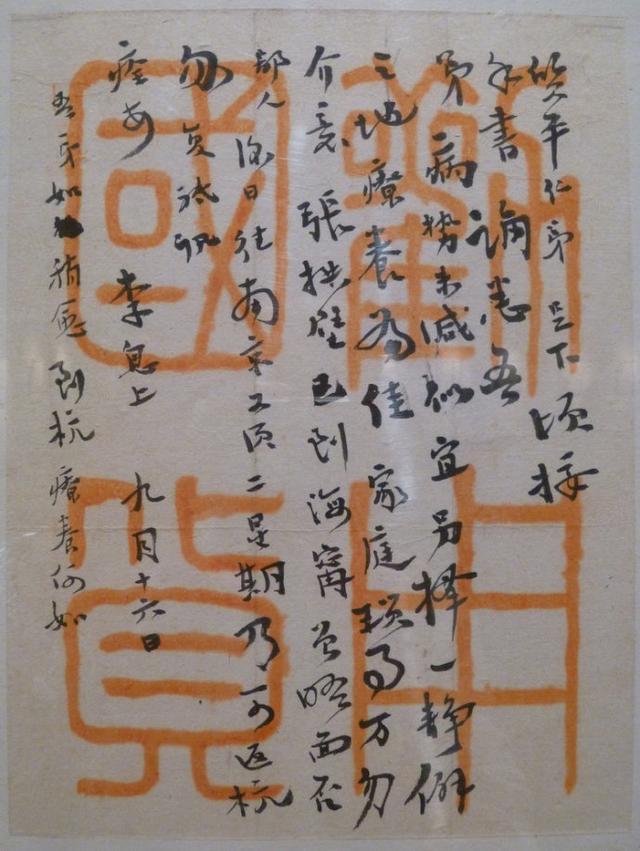 質平仁弟足下頃接
手書誦悉吾
弟病勢未減似宜另擇一靜僻
之地療養為佳家庭瑣事万勿
介意張拱璧已到海寧曾晤面否
鄙人後日往南京須二星期乃可返杭
勿复祗訊
痊安 李息上 九月十六日
吾弟如稍愈到杭療養何如